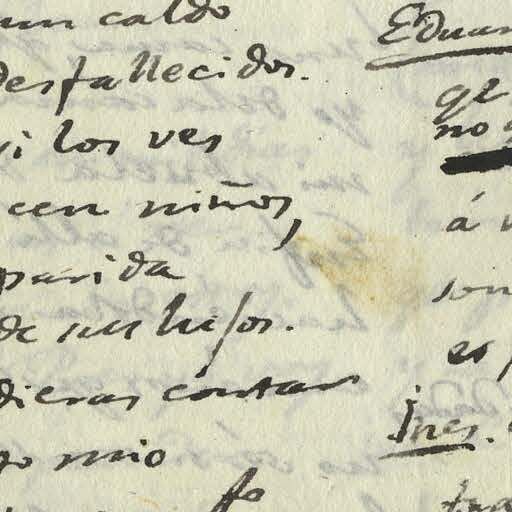 un caldo
desfallecidos.
si los ves
cen niños,
parida
de sus hijos.
dieras contar
go mio
fo
Eduar
qe
no
á
son
es
Ines.